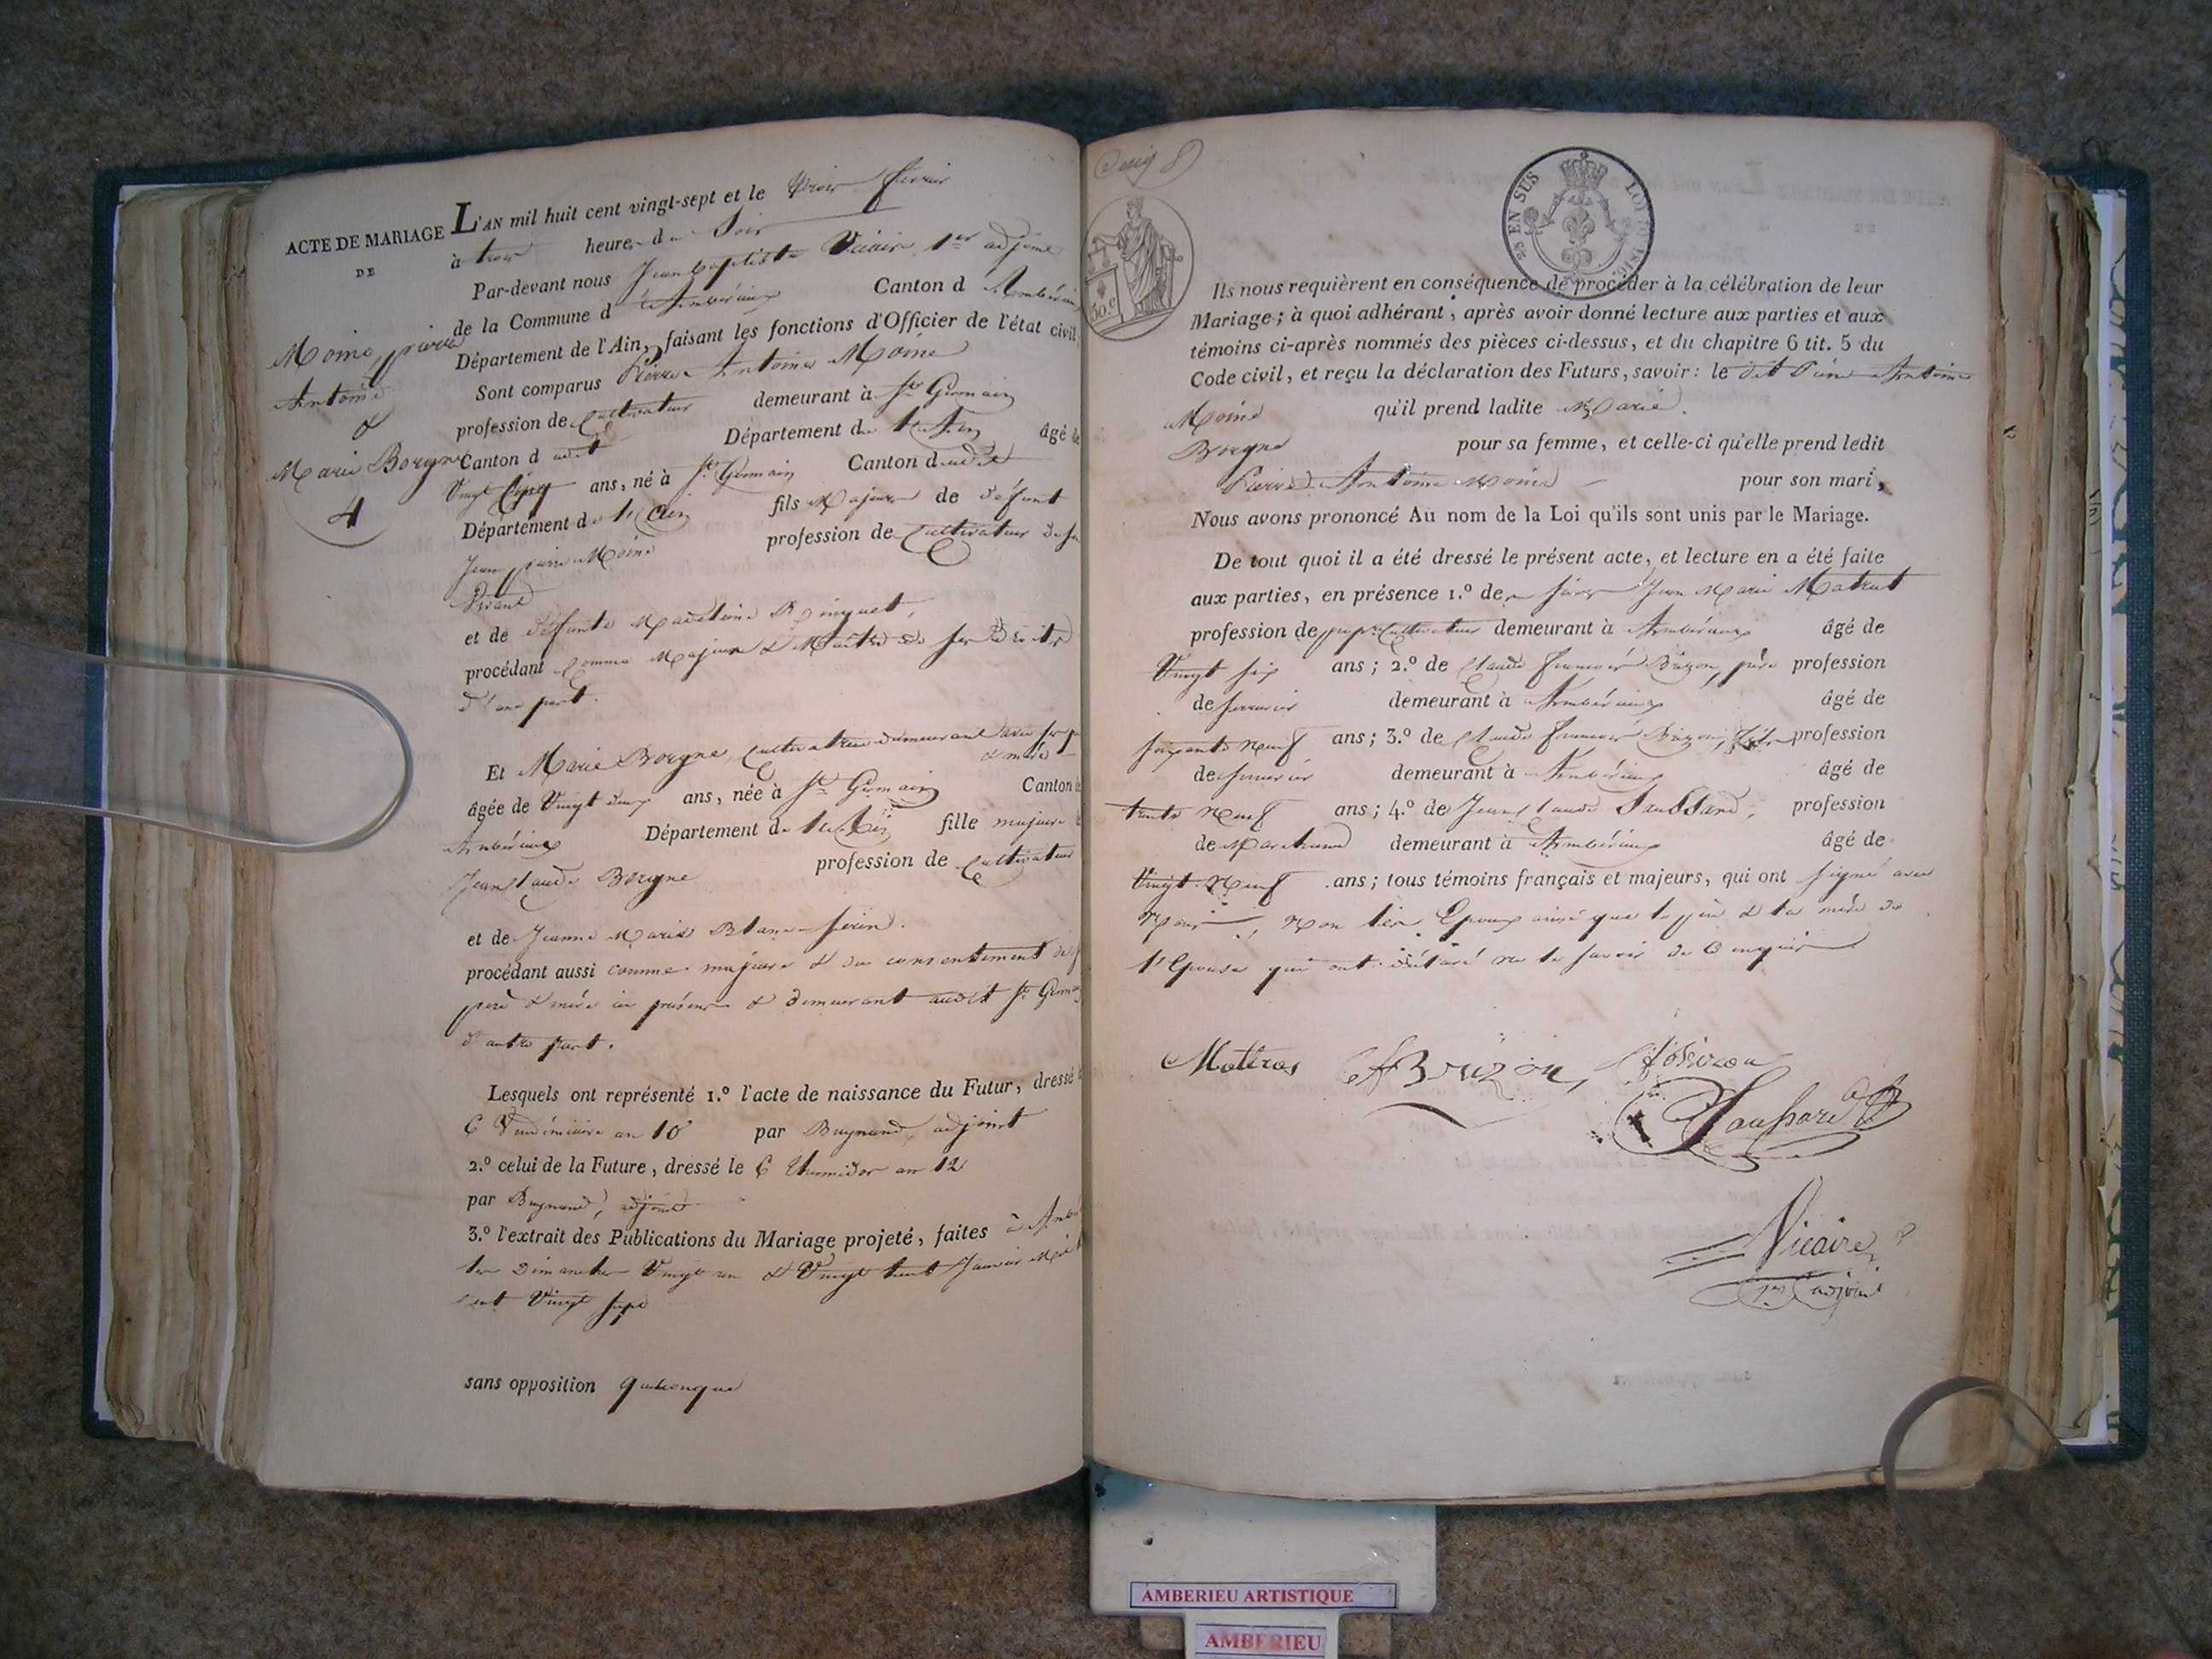 ACTE DE MARIAGE
DE
Moine pierre
Antoine
&
Marie Borgne
4
L'AN mil huit cent vingt-sept et le trois fevrier
à trois heures du Soir
Par-devant nous Jean baptiste Vicaire 1er adjoint
de la Commune d'Ambérieux Canton d'Ambérieux
Département de l'Ain, faisant les fonctions d'Officier de l'état civil
Sont comparus Pierre Antoine Moine
profession de Cultivateur demeurant à St Germain
Canton dudit Département de l'Ain âgé de
Vingt Cinq ans, né à St Germain Canton dudit
Département de l'Ain fils Majeur de défunt
Jean pierre Moine profession de Cultivateur de son
Vivant
et de défunte Madelaine
procédant Comme Majeur & Maitre de ses droits
d'une part.
Et Marie Borgne, Cultivatrice demeurant avec ses père
& mère
âgée de Vingt deux ans, née à St Germain Canton
Ambérieux Département de l'Ain fille majeure
Jean Claude Borgne profession de Cultivateur
et de Jeanne Marie Blanc-ferin.
procédant aussi comme majeure & du consentement de ses
père & mère ici présents & demeurant audit St Germain
d'autre part.
Lesquels ont représenté 1.° l'acte de naissance du Futur, dressé
6 Vendémiaire an 10 par Buynand, adjoint
2.° celui de la Future, dressé le 6 thermidor an 12
par Buynand, adjoint
3.° l'extrait des Publications du Mariage projeté, faites à
les Dimanches Vingt un & Vingt huit Janvier Mil
cent Vingt sept
sans opposition quelconque
25 EN SUS
30.c
Ils nous requièrent en conséquence de procéder à la célébration de leur
Mariage; à quoi adhérant, après avoir donné lecture aux parties et aux
témoins ci-après nommés des pièces ci-dessus, et du chapitre 6 tit. 5 du
Code civil, et reçu la déclaration des Futurs, savoir: le dit Pierre Antoine
Moine qu'il prend ladite Marie
Borgne pour sa femme, et celle-ci qu'elle prend ledit
Pierre Antoine Moine pour son mari,
Nous avons prononcé Au nom de la Loi qu'ils sont unis par le Mariage.
De tout quoi il a été dressé le présent acte, et lecture en a été faite
aux parties, en présence 1.° de Jean Marie
profession de Cultivateur demeurant à Ambérieux âgé de
Vingt six ans; 2.° de Claude francois Brizon, père profession
de serrurier demeurant à Ambérieux âgé de
soixante Neuf ans; 3.° de Claude francois Brizon, fils profession
de serrurier demeurant à Ambérieux âgé de
trente Neuf ans; 4.° de Jean Claude Saussard, profession
de Marchand demeurant à Ambérieux âgé de
Vingt Neuf ans; tous témoins français et majeurs, qui ont signé avec
Nous, Non les Epoux ainsi que le père & la mère de
l'Epouse qui ont déclaré ne le savoir de Ce enquis
Brizon,
Saussard
Vicaire
1er adjoint
AMBERIEU ARTISTIQUE
AMBERIEU